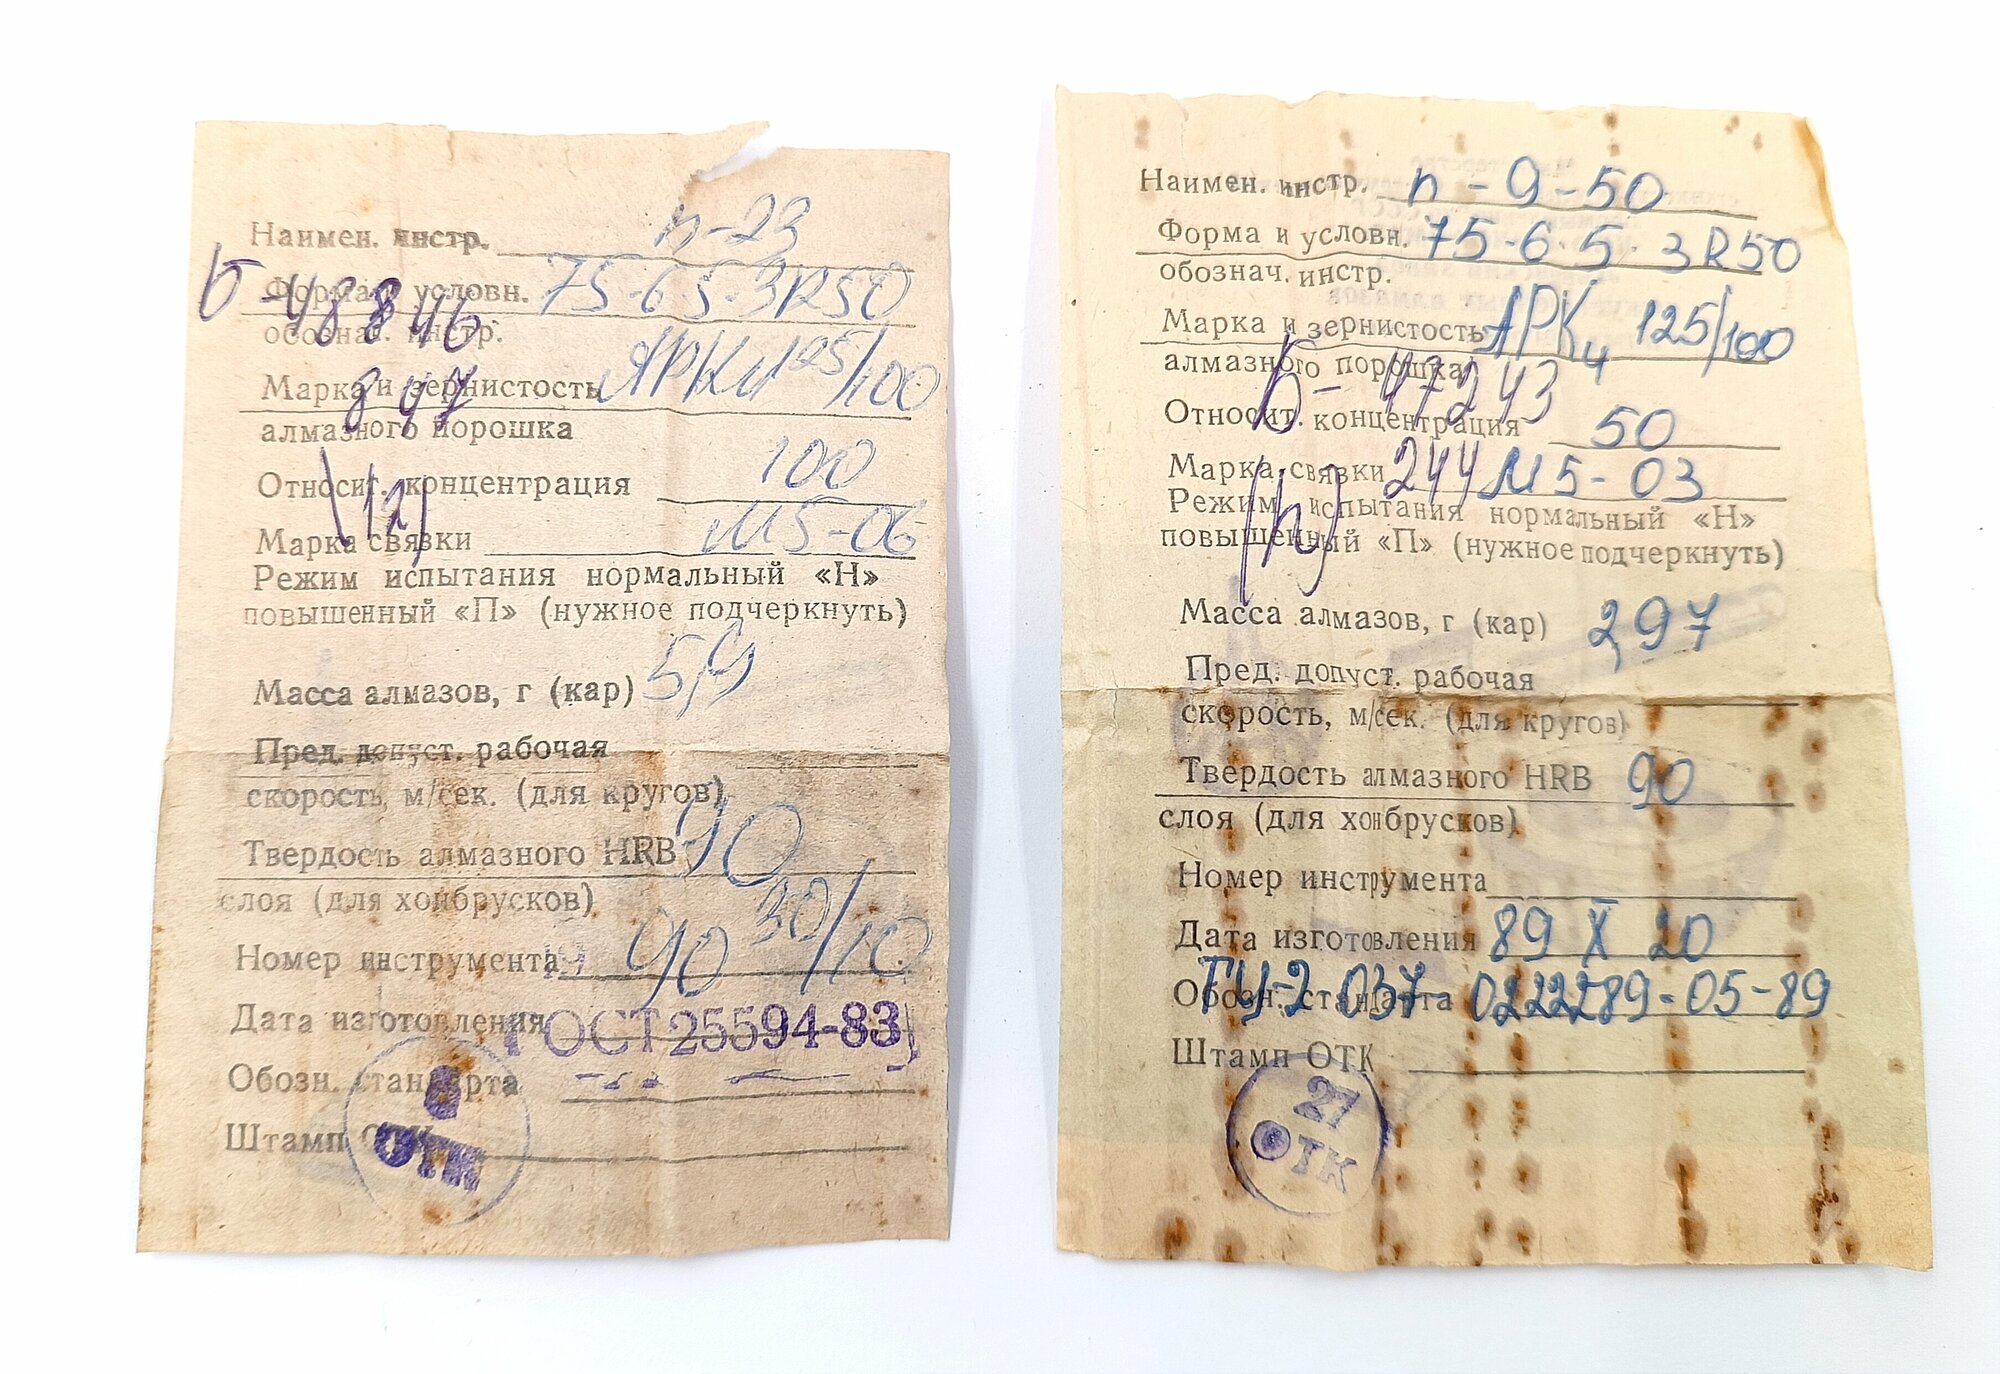 Наимен. инстр. п-23
Форма и условн. 75-6-5-3R50
обознач. инстр.
Б-48846
Марка и зернистость АРК4 125/100
847
алмазного порошка
Относит. концентрация 100
(12)
Марка связки М5-06
Режим испытания нормальный «Н»
повышенный «П» (нужное подчеркнуть)
Масса алмазов, г (кар) 5,9
Пред. допуст. рабочая
скорость, м/сек. (для кругов)
Твердость алмазного HRB 90
слоя (для хонбрусков)
Номер инструмента
90 30/10
Дата изготовления
ГОСТ 25594-83
Обозн. стандарта
Штамп ОТК
ОТК
Наимен. инстр. п-9-50
Форма и условн. 75-6-5-3R50
обознач. инстр.
Марка и зернистость АРК4 125/100
алмазного порошка
Б-47243
Относит. концентрация 50
244
Марка связки М5-03
Режим испытания нормальный «Н»
повышенный «П» (нужное подчеркнуть)
Масса алмазов, г (кар) 2,97
Пред. допуст. рабочая
скорость, м/сек. (для кругов)
Твердость алмазного HRB 90
слоя (для хонбрусков)
Номер инструмента
Дата изготовления 89 X 20
Обозн. стандарта ТУ-2 037 0222289-05-89
Штамп ОТК
27
ОТК